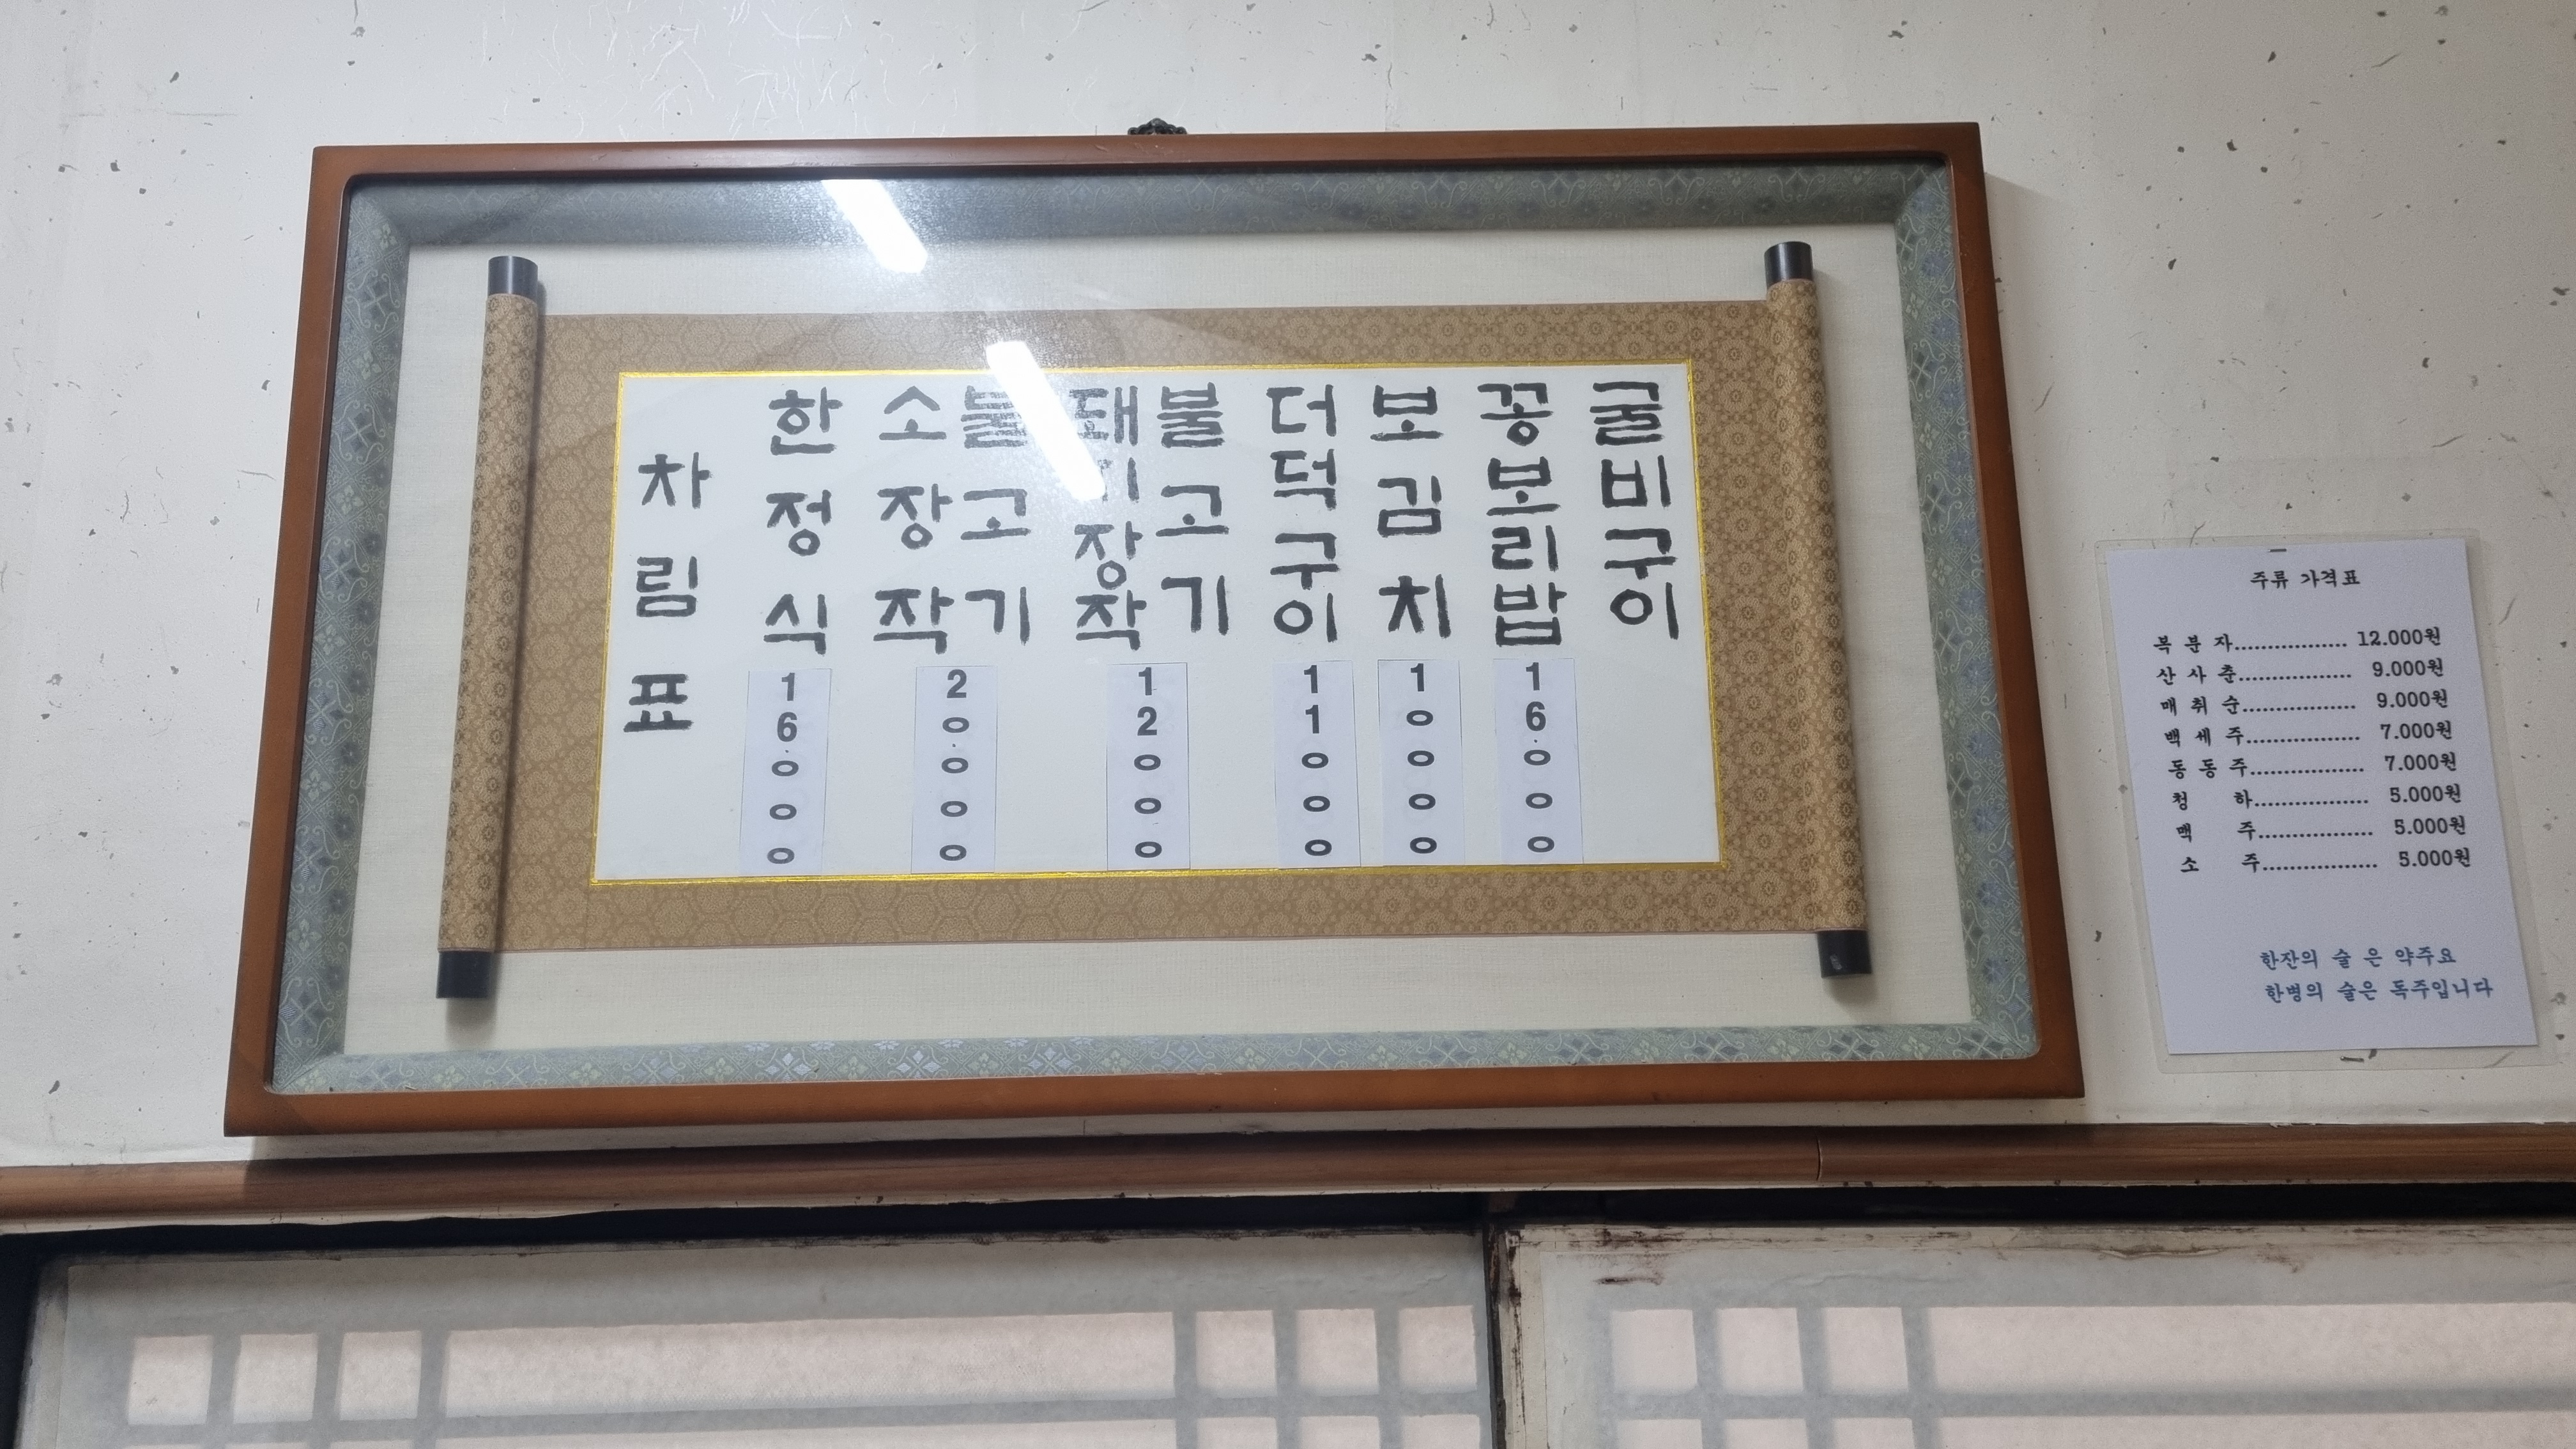 차림표
한정식 16.000
소장작 불고기 20.000
돼지장작 불고기 12000
더덕구이 11000
보김치 10000
꽁보리밥 16.000
굴비구이
주류 가격표
복 분 자................. 12.000원
산 사 춘................. 9.000원
매 취 순................. 9.000원
백 세 주................. 7.000원
동 동 주................. 7.000원
청 하................. 5.000원
맥 주................. 5.000원
소 주................. 5.000원
한잔의 술 은 약주요
한병의 술은 독주입니다